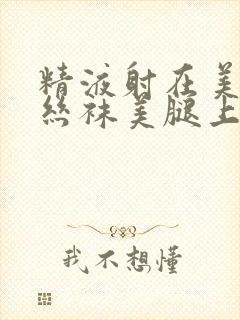 精液射在美
丝袜美腿上
我不想懂